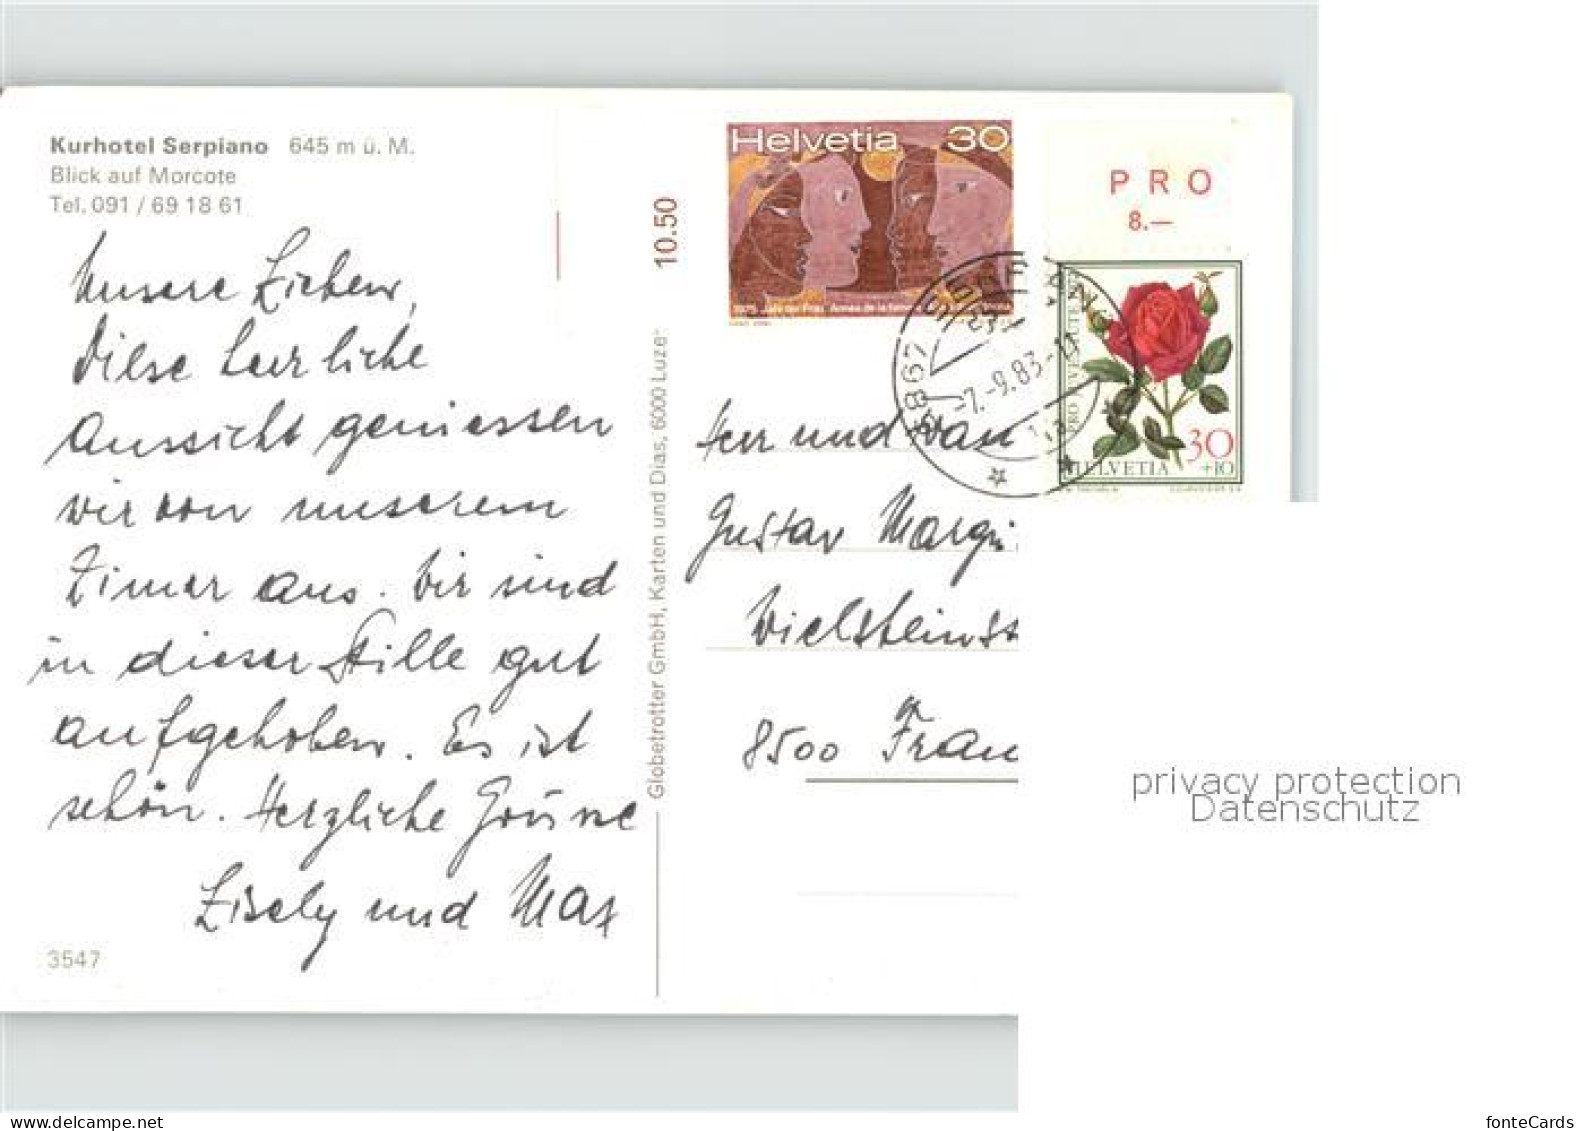 Kurhotel Serpiano 645 m ü. M.
Blick auf Morcote
Tel. 091 / 69 18 61
Unsere Lieben,
Diese herrliche
Aussicht geniessen
wir von unserem
Zimer aus. Wir sind
in dieser Stille gut
aufgehoben. Es ist
schön. Herzliche Grüsse
Lisely und Max
3547
10.50
Globetrotter GmbH, Karten und Dias, 6000 Luze
Helvetia 30
1975 Jahr der Frau Année de la femme
PRO
8.—
PRO JUVENTUTE 1972
30
+10
HELVETIA
6867
-7.-9.83-11
Herr und Frau
Gustav
8500 Frau
privacy protection
Datenschutz
www.delcampe.net
fonteCards